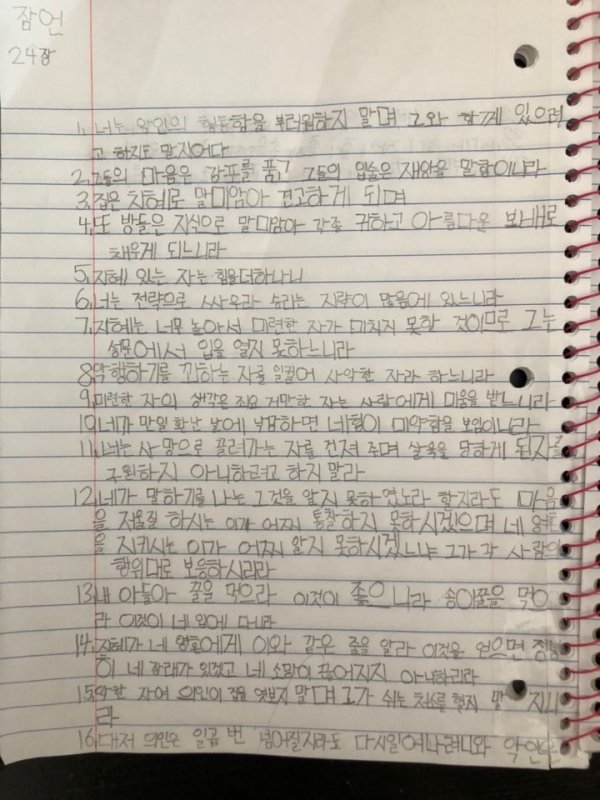 잠언
24장
1. 너는 악인의 형통함을 부러워하지 말며 그와 함께 있으려
고 하지도 말지어다
2. 그들의 마음은 강포를 품고 그들의 입술은 재앙을 말함이니라
3. 집은 지혜로 말미암아 건고하게 되며
4. 또 방들은 지식으로 말미암아 각종 귀하고 아름다운 보배로
채우게 되느니라
5. 지혜 있는 자는 힘을더하나니
6. 너는 전략으로 싸우라 승리는 지략이 많음에 있느니라
7. 지혜는 너무 높아서 미련한 자가 미치지 못할 것이므로 그는
성문에서 입을 열지 못하느니라
8. 악행하기를 꾀하는 자를 일컬어 사악한 자라 하느니라
9. 미련한 자의 생각은 죄요 거만한 자는 사람에게 미움을 받느니라
10. 네가 만일 환난 날에 낙담하면 네 힘이 미약함을 보임이니라
11. 너는 사망으로 끌려가는 자를 건져 주며 살육을 당하게 된자를
구원하지 아니하려고 하지 말라
12. 네가 말하기를 나는 그것을 알지 못하였노라 할지라도 마음
을 저울질 하시는 이가 어찌 통찰하지 못하시겠으며 네 영혼
을 지키시는 이가 어찌 알지 못하시겠느냐 그가 각 사람의
행위대로 보응하시리라
13. 내 아들아 꿀을 먹으라 이것이 좋으니라 송이꿀을 먹으
라 이것이 네 입에 다니라
14. 지혜가 네 영혼에게 이와 같은 줄을 알라 이것을 얻으면 정녕
히 네 장래가 있겠고 네 소망이 끊어지지 아니하리라
15. 악한 자여 의인의 집을 엿보지 말며 그가 쉬는 처소를 헐지 말지니
라
16. 대저 의인은 일곱 번 넘어질지라도 다시일어나려니와 악인은